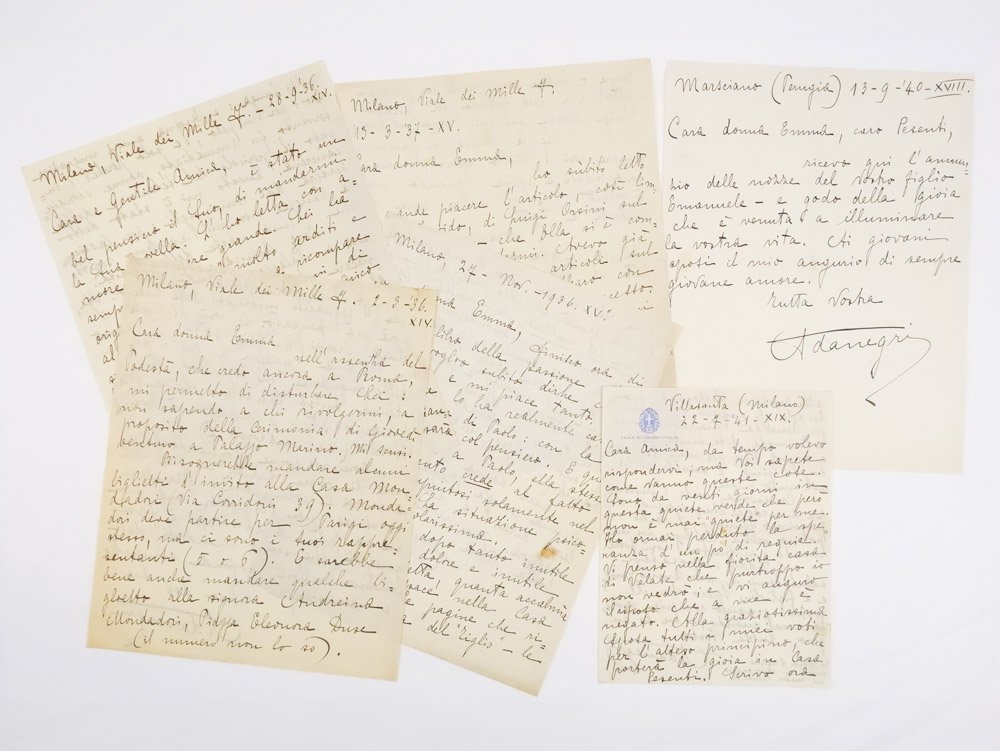 Milano, Viale dei Mille 7. - 28-9-'36.
XIV.
Cara e Gentile Amica, è stato un
bel pensiero il Suo, di mandarmi
la Sua novella: l'ho letta con a-
more grande. Lei ha
sempre molto arditi e
ricompare
di
Milano, Viale dei Mille 7.
13-3-37-XV.
Cara donna Emma,
ho subito letto
piacere l'articolo, così lim-
pido, di Luigi Orsini sul
- che Ella si è com-
Avevo già
articoli sul
con
Marsciano (Perugia) 13-9-'40-XVIII.
Cara donna Emma, caro Pesenti,
ricevo qui l'annun-
zio delle nozze del vostro figlio
Emanuele - e godo della gioia
che è venuta a illuminare
la vostra vita. Ai giovani
sposi il mio augurio di sempre
giovane amore.
Tutta Vostra
Adanegri
Milano, Viale dei Mille 7. 2-3-'36.
XIV.
Cara donna Emma
nell'assenza del
Podestà, che credo ancora a Roma,
mi permetto di disturbare Lei:
non sapendo a chi rivolgermi, a
proposito della cerimonia di Giovedì
venturo a Palazzo Marino. Mi scusi.
Bisognerebbe mandare alcuni
biglietti d'invito alla Casa Mon-
dadori (Via Corridoni 39). Monda-
dori deve partire per Parigi oggi
stesso, ma ci sono i suoi rappre-
sentanti (5 o 6). E sarebbe
bene anche mandare qualche bi-
glietto alla signora Andreina
Mondadori, Piazza Eleonora Duse
(il numero non lo so).
Milano, 27-Nov.-1936.XV.
Emma, finisco ora di
libro della passione
voglio subito dirle
e mi piace tanto
lo ha realmente
di Paolo: con la
col pensiero. E
a Paolo, ella stessa
crede al fatto
solamente nel
la situazione psico-
carissima.
dopo tanto inutile
dolore e inutile
quanta accalmia
pace nella Casa
pagine che ri-
del "Giglio" - le
Villasanta (Milano)
22-7-41-XIX.
Cara Amica, da tempo volevo
rispondervi; ma Voi sapete
come vanno queste cose.
Sono da venti giorni in
questa quiete verde che però
non è mai "quiete" per me.
Ho ormai perduto la spe-
ranza d'un po' di requie.
Vi penso nella fiorita casa
di Valate che purtroppo io
non vedrò; e vi auguro
riposo che a me è
negato. Alla graziosissima
sposa tutti i miei voti
per l'atteso principino, che
porterà la gioia in Casa
Pesenti. Scrivo ora